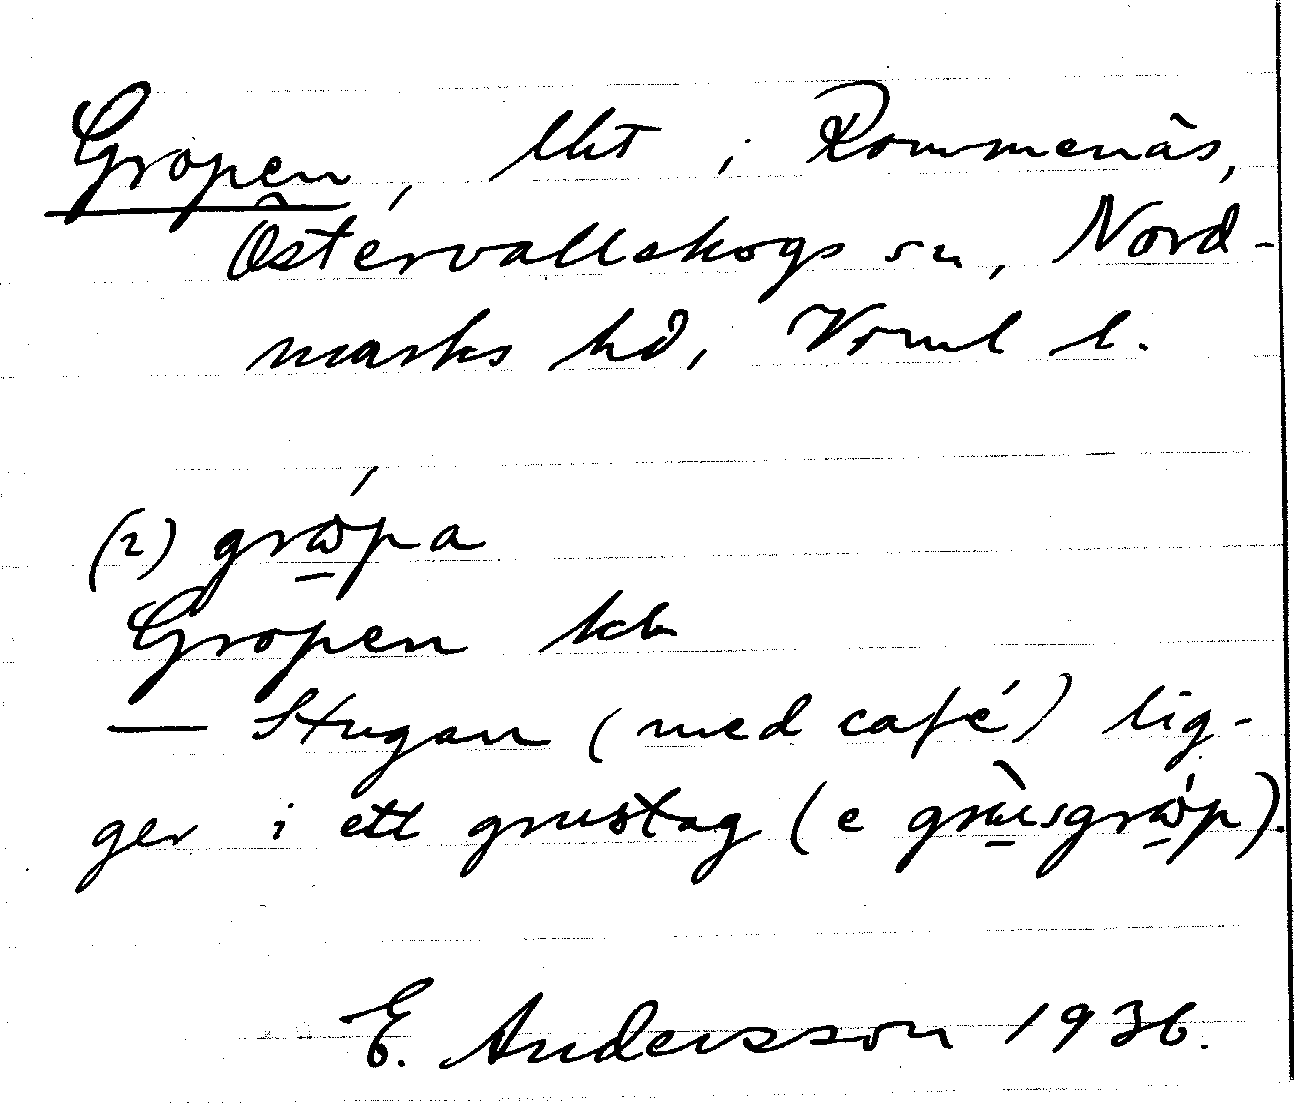 Gropen, lht i Rommenäs,
Östervallskogs sn, Nord-
marks hd, Vrml l.
(2) grώ̲pa
Gropen kb
— Stugan (med café) lig-
ger i ett grustag (e grùsgrώ̲p).
E. Andersson 1936.